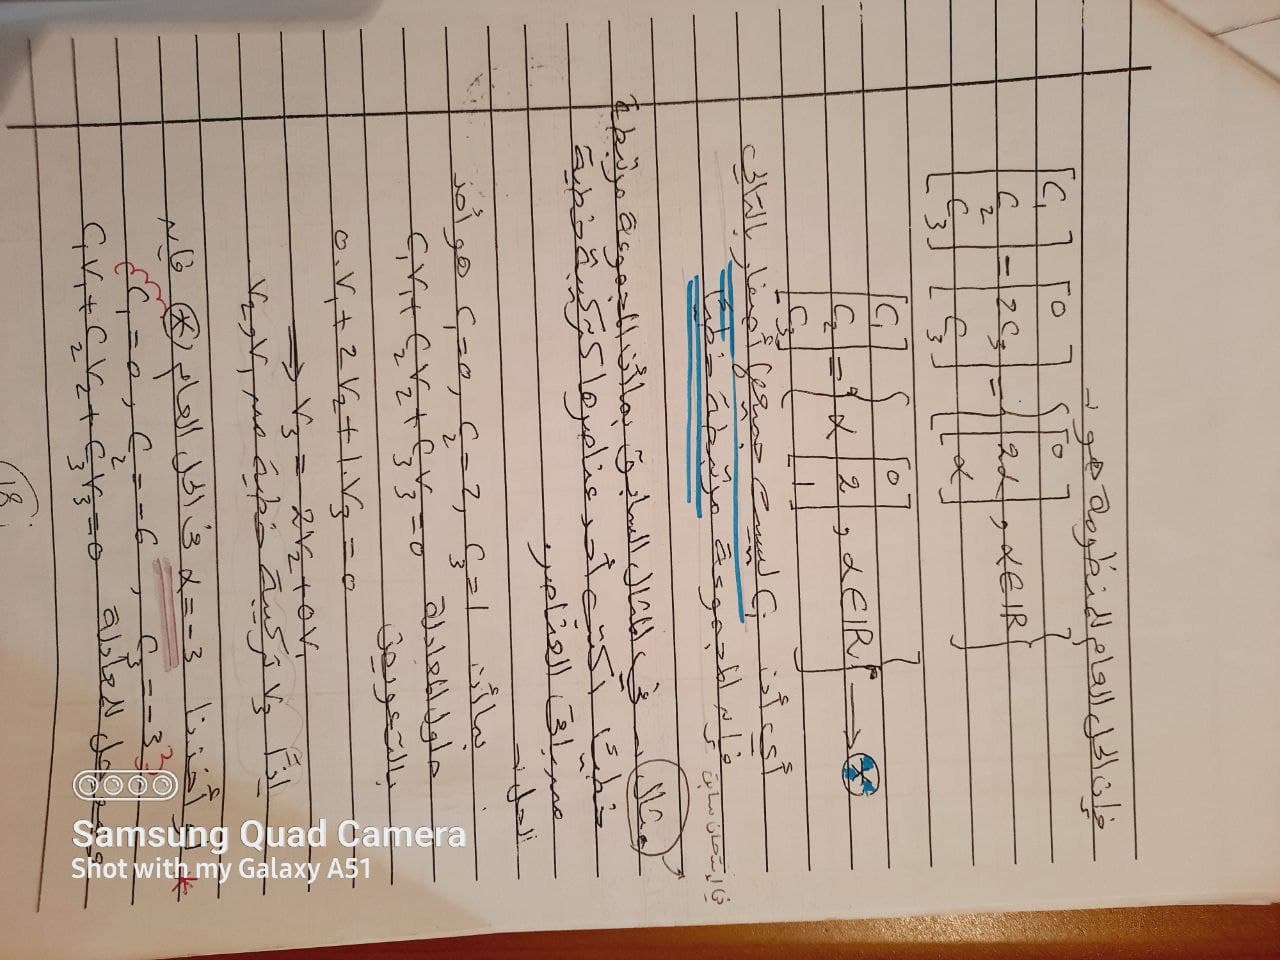 فإن الحل العام للمنظومة هو :-
[C₁ C₂ C₃] = [0 2C₃ C₃] = { [0 2α α] , α ∈ IR }
[C₁ C₂ C₃] = { α [0 2 1] , α ∈ IR } → *
أي أن Cᵢ ليست جميعها أصفار بالتالي
فإن المجموعة مرتبطة خطيًا
في إمتحان سابق
مثال :- في المثال السابق بما أن المجموعة مرتبطة
خطيًا أكتب أحد عناصرها كتركيبة خطية
من باقي العناصر
الحل :-
بما أن C₁=0, C₂=2, C₃=1 هو أحد
حلول المعادلة C₁V₁+C₂V₂+C₃V₃=0
بالتعويض
0.V₁+2V₂+1.V₃=0
⇒ V₃ = 2V₂+0V₁
إذًا V₃ تركيبة خطية من V₁ و V₂
* لو أخذنا α=-3 في الحل العام * فإن
C₁=0, C₂=-6, C₃=-3
حل للمعادلة C₁V₁+C₂V₂+C₃V₃=0
18
Samsung Quad Camera
Shot with my Galaxy A51